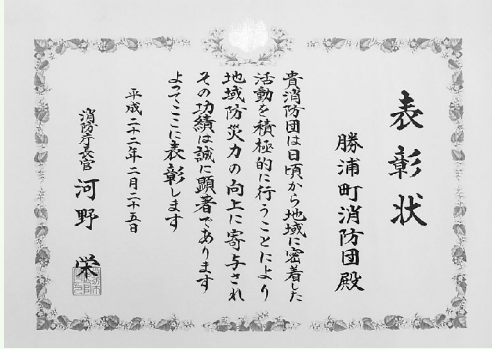 表彰状
勝浦町消防団殿
貴消防団は日頃から地域に密着した
活動を積極的に行うことにより
地域防災力の向上に寄与され
その功績は誠に顕著であります
よってここに表彰します
平成二十二年二月二十五日
消防庁長官 河野 栄